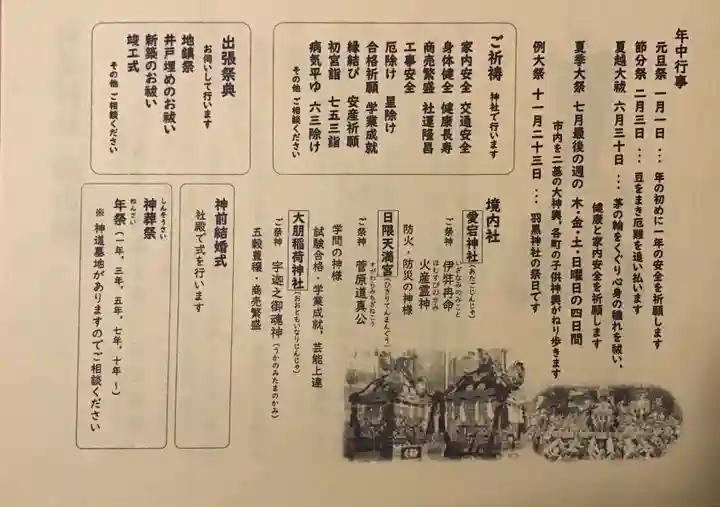 年中行事
元旦祭 一月一日 ... 年の初めに一年の安全を祈願します
節分祭 二月三日 ... 豆をまき厄難を追い払います
夏越大祓 六月三十日 ... 茅の輪をくぐり心身の穢れを祓い、
健康と家内安全を祈願します
夏季大祭 七月最後の週の 木・金・土・日曜日の四日間
市内を二基の大神輿、各町の子供神輿がねり歩きます
例大祭 十一月二十三日 ... 羽黒神社の祭日です
ご祈祷 神社で行います
家内安全 交通安全
身体健全 健康長寿
商売繁盛 社運隆昌
工事安全
厄除け 星除け
合格祈願 学業成就
縁結び 安産祈願
初宮詣 七五三詣
病気平ゆ 六三除け
その他 ご相談ください
出張祭典
お伺いして行います
地鎮祭
井戸埋めのお祓い
新築のお祓い
竣工式
その他 ご相談ください
境内社
愛宕神社(あたごじんじゃ)
ご祭神 伊弉冉命
いざなみのみこと
火産霊神
ほむすびのかみ
防火・防災の神様
日限天満宮(ひぎりてんまんぐう)
ご祭神 菅原道真公
すがわらみちざねこう
学問の神様
試験合格・学業成就、芸能上達
大朋稲荷神社(おおともいなりじんじゃ)
ご祭神 宇迦之御魂神(うかのみたまのかみ)
五穀豊穣・商売繁盛
神前結婚式
社殿で式を行います
神葬祭
しんそうさい
年祭(一年、三年、五年、七年、十年~)
ねんさい
※ 神道墓地がありますのでご相談ください